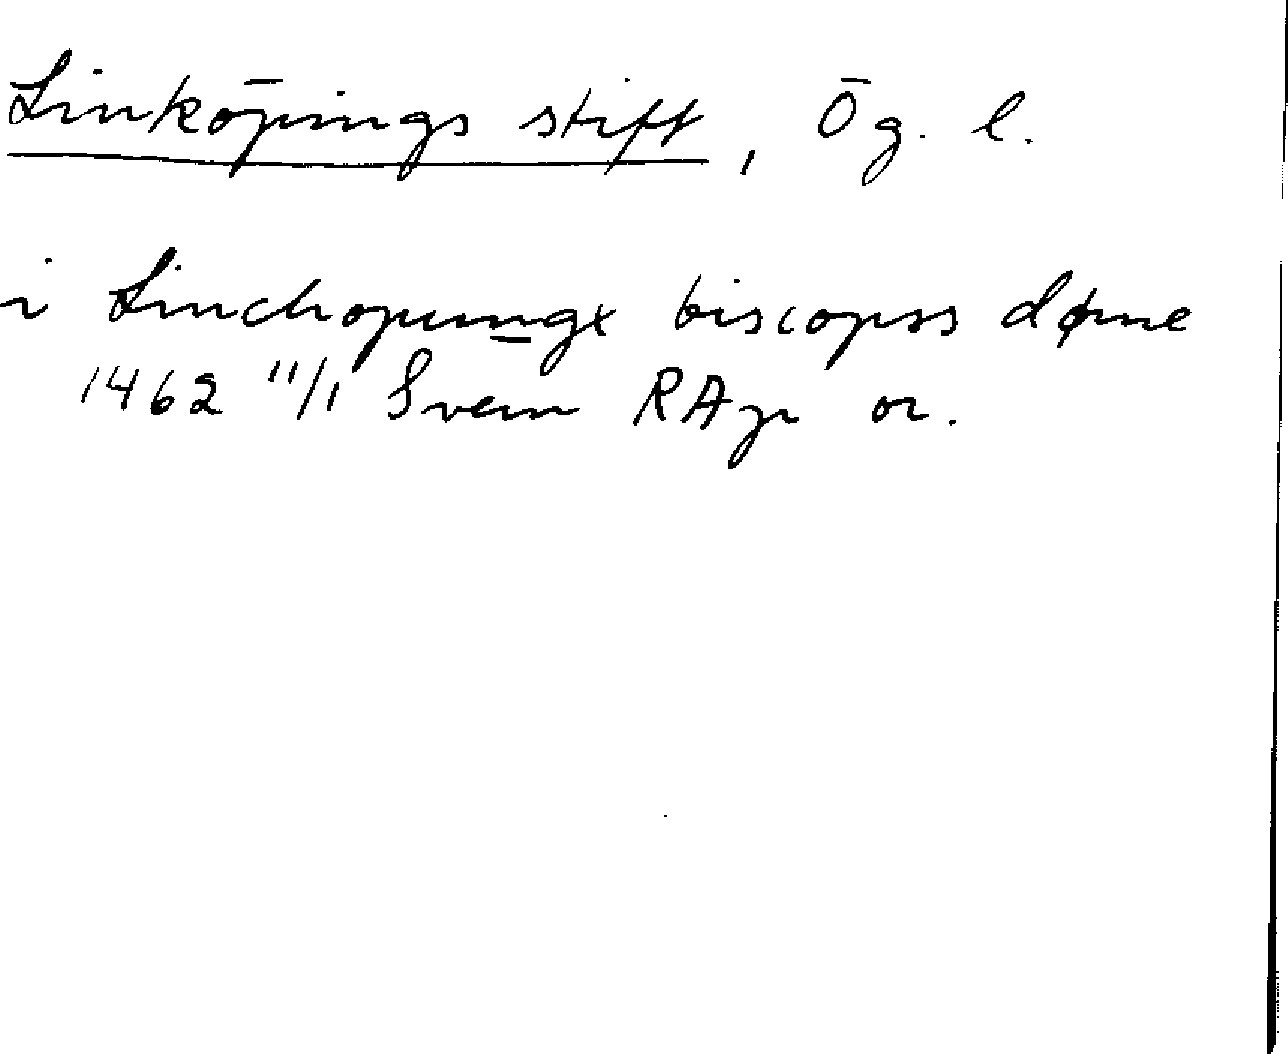 Linköpings stift, Ög. l.
i Linchopungx biscopss døme
1462 11/1 Svem RAp or.